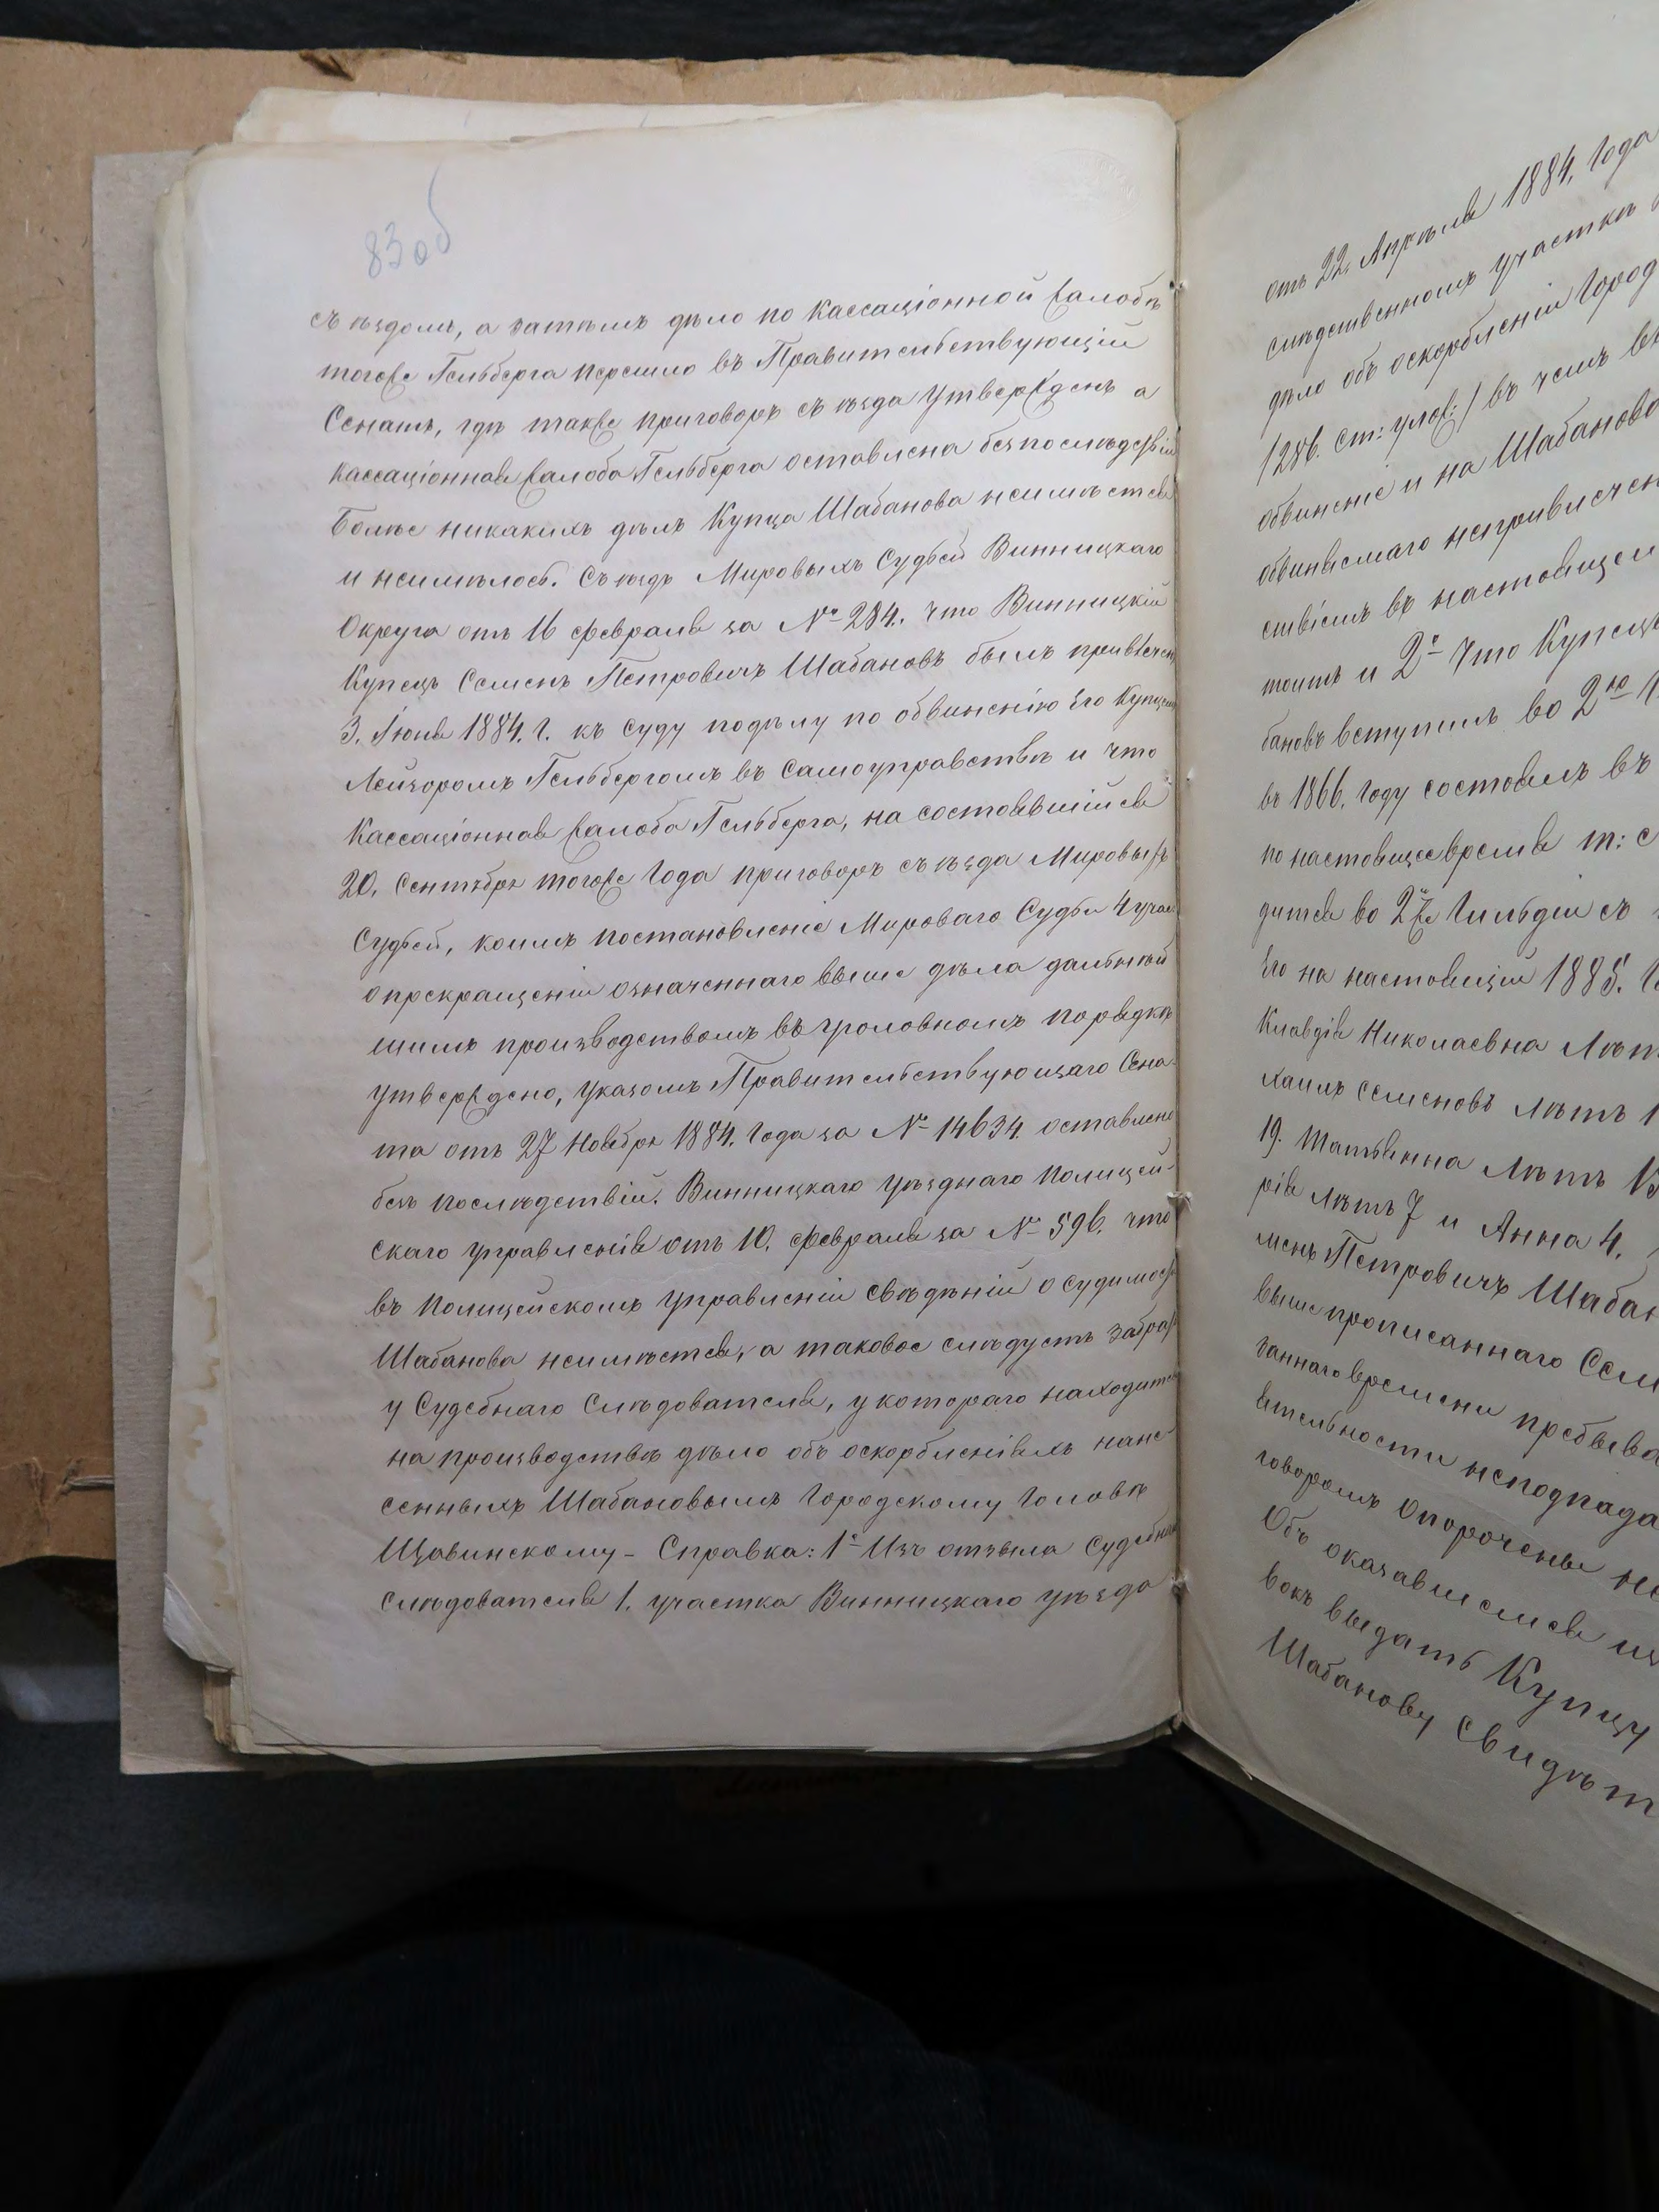 83 об
съѣздомъ, а затѣмъ дѣло по Кассаціонной жалобѣ
тогоже Гельберга перешло въ Правительствующій
Сенатъ, гдѣ также приговоръ съѣзда утвержденъ а
кассаціонная жалоба Гельберга оставлена безпослѣдствій
Болѣе никакихъ дѣлъ Купца Шабанова неимѣется
и неимѣлось. Съѣздъ Мировыхъ Судьей Винницкаго
Округа отъ 16 февраля за № 284. что Винницкій
Купецъ Семенъ Петровичъ Шабановъ былъ привлечен
3. Іюня 1884. г. къ суду подѣлу по обвиненію Его Купцем
Лейзоромъ Гельбергомъ въ самоуправствѣ и что
Кассаціонная жалоба Гельберга, на состоявшійся
20. Сентября тогоже Года приговоръ съѣзда Мировыхъ
Судьей, коимъ постановленіе Мироваго Судьи 4 учас
опрекращеніи означеннаго выше дѣла дальнѣй
шимъ производствомъ въ уголовномъ порядкѣ
утверждено, указомъ Правительствующаго Сена-
та отъ 27 Ноября 1884. Года за № 14634. оставлено
безъ послѣдствій. Винницкаго уѣзднаго полицей-
скаго управленія отъ 10. февраля за № 596. что
въ полицейскомъ управленіи свѣдѣній о судимос
Шабанова неимѣется, а таковое слѣдуетъ забрать
у Судебнаго Слѣдователя, у котораго находится
на производствѣ дѣло объ оскорбленіяхъ нане-
сенныхъ Шабановымъ Городскому Головѣ
Щавинскому - Справка: 1е Изъ отзыва Судебнаго
слѣдователя 1. участка Винницкаго уѣзда
отъ 22. Апрѣля 1884. Года
слѣдственномъ участкѣ
дѣло объ оскорбленіи Город
/286. ст: улож:/ въ чемъ въ
обвиненіе и на Шабанова
обвиняемаго непривлечен
ствіемъ въ настоящем
тоитъ и 2е Что Купецъ
бановъ вступилъ во 2ю
въ 1866. Году состоялъ въ
по настоящее время т: е
дится во 2й же Гильдіи съ
Его на настоящій 1885. Г
Клавдія Николаевна Лѣт
хаилъ Семеновъ Лѣтъ 1
19. Татьянна Лѣтъ 13
рія Лѣтъ 7 и Анна 4.
менъ Петровичъ Шабан
выше прописаннаго Сем
заннаго времени пребыва
ятельности неподпада
говоромъ Опорочены не
Объ оказавшемся из
вокъ выдать Купцу
Шабанову Свидѣт